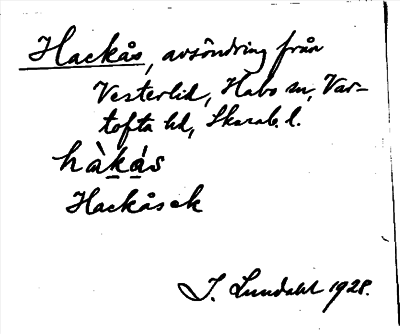 Hackås, avsöndring från
Vesterlid, Habo sn, Var-
tofta hd, Skarab. l.
hàkås
Hackåsek
I. Lundahl 1928.